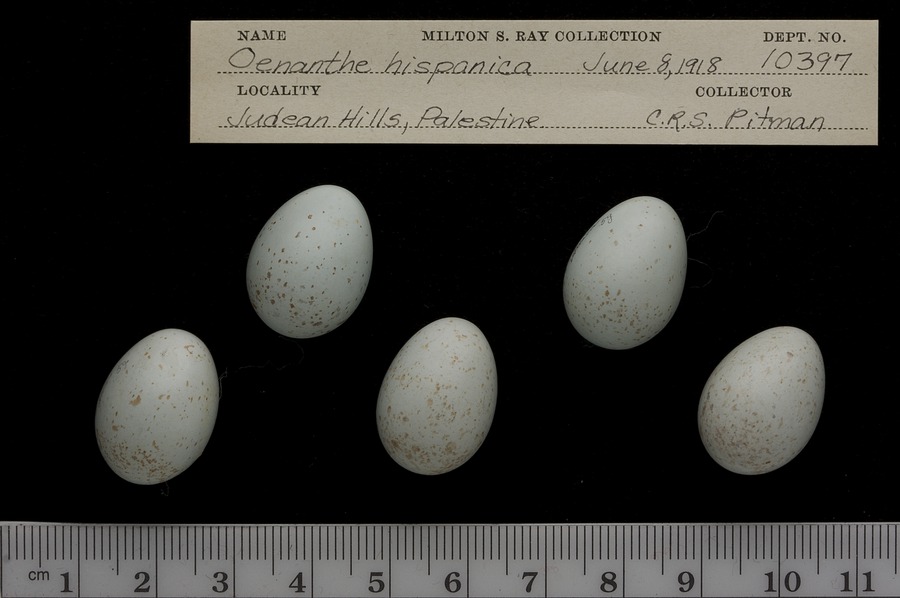 NAME MILTON S. RAY COLLECTION DEPT. NO.
Oenanthe hispanica June 8, 1918 10397
LOCALITY COLLECTOR
Judean Hills, Palestine C.R.S. Pitman
cm 1 2 3 4 5 6 7 8 9 10 11